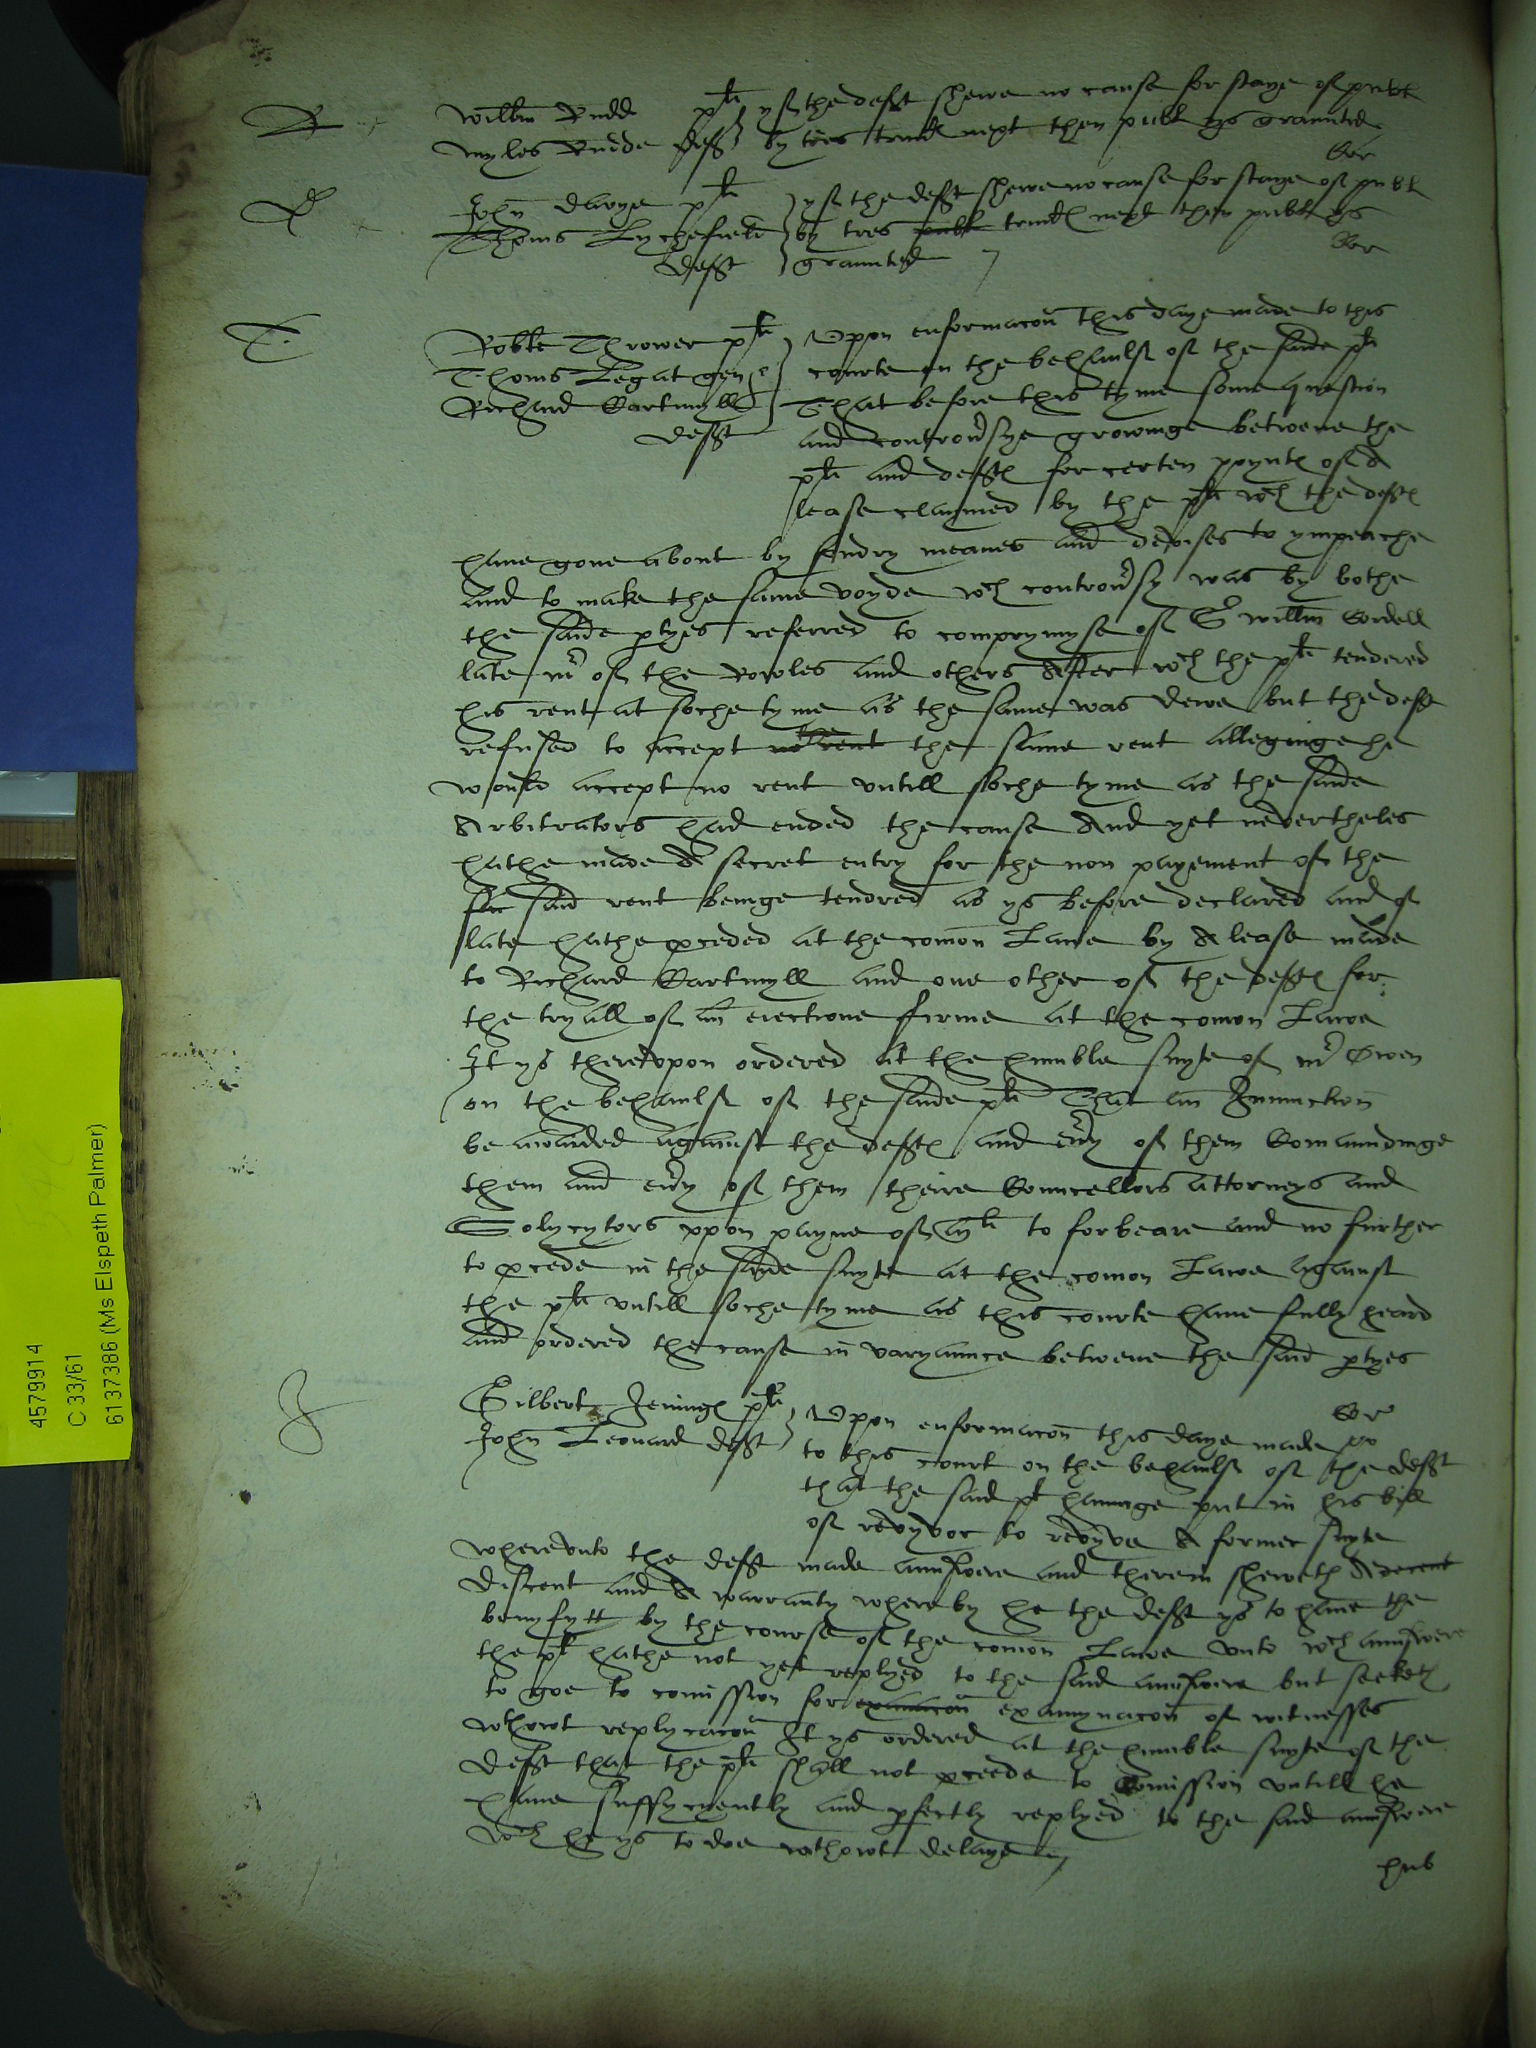 R
Willm Rudd plt
Myles Rudde deft
yf the deft shewe no cause for staye of publ
by tres trinit next then publ ys graunted
Cor
D
John Davye plt
Thoms Lychefield
deft
yf the deft shewe no cause for staye of publ
by tres publ trinit next then publ ys
graunted
Cor
T
Robte Thrower plt
Thoms Legat gen &
Richard Cartmyll
deft
Upon enformacon this daye made to this
courte on the behaulf of the saide plt
That before this tyme some question
and controvsye growinge betwene the
plt and defts for certen poynts of A
lease claymed by the plt wch the defts
have gone about by sundry meanes and devises to ympeache
and to make the same voyde wch controvsy was by bothe
the saide ptyes referred to comprymyse of Sr Willm Cordell
late mr of the Rowles and others After wch the plt tendered
his rent at soche tyme as the same was dewe but the deft
refused to accept no rent the same rent alleginge he
would accept no rent untill soche tyme as the saide
Arbitrators had ended the cause And yet nevertheles
hathe made A secret entry for the non payement of the
said rent beinge tendred as ys before declared and of
late hathe pceded at the comon Lawe by A lease made
to Richard Cartmyll and one other of the defts for
the tryall of an eiectione firme at the comon Lawe
It ys therevpon ordered at the humble suyte of mr Owen
on the behaulf of the saide plt That an Iniunction
be awarded against the defts and evy of them Comaundinge
them and evy of them theire Councellors attorneys and
Solycytors vppon payne of to forbeare and no further
to pcede in the saide suyte at the comon Lawe against
the plt untill soche tyme as this courte have fully heard
and ordered the cause in varyaunce betwene the said ptyes
Cor
J
Gilbert Jennings plt
John Leonard deft
Upon enformacon this daye made
to this court on the behaulf of the deft
that the said plt havinge put in his bill
of revyvor to revyve A former suyte
wherevnto the deft made answere and therein sheweth A decent
discent and A warranty whereby he the deft ys to have the
benyfytt by the course of the comon Lawe unto wch answere
the plt hathe not yet replyed to the said answere but seeketh
to goe to comission for examacon examynacon of witnesses
wthowt replycacon It ys ordered at the humble suyte of the
deft that the plt shall not pceede to Comission untill he
have suffycyently and pfectly replyed to the said answere
wch he ys to doe wthowt delaye
hub
4579914
C 33/61
6137386 (Ms Elspeth Palmer)